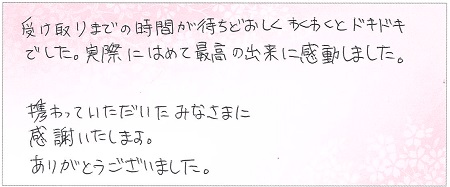 受け取りまでの時間が待ちどおしく わくわくとドキドキ
でした。実際にはめて最高の出来に感動しました。
携わっていただいた みなさまに
感謝いたします。
ありがとうございました。